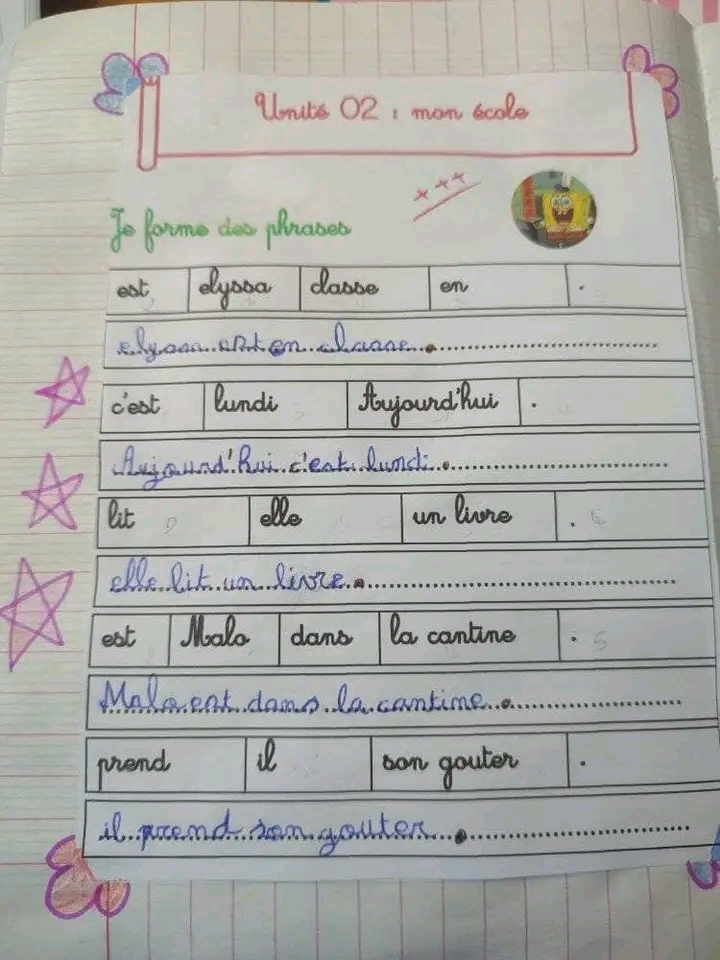 Unité 02 : mon école
+++
Je forme des phrases
est elyssa classe en .
elyssa est en classe.
c'est lundi Aujourd'hui .
Aujourd'hui c'est lundi.
lit elle un livre .
elle lit un livre.
est Malo dans la cantine . 5
Malo est dans la cantine.
prend il son gouter .
il prend son gouter.